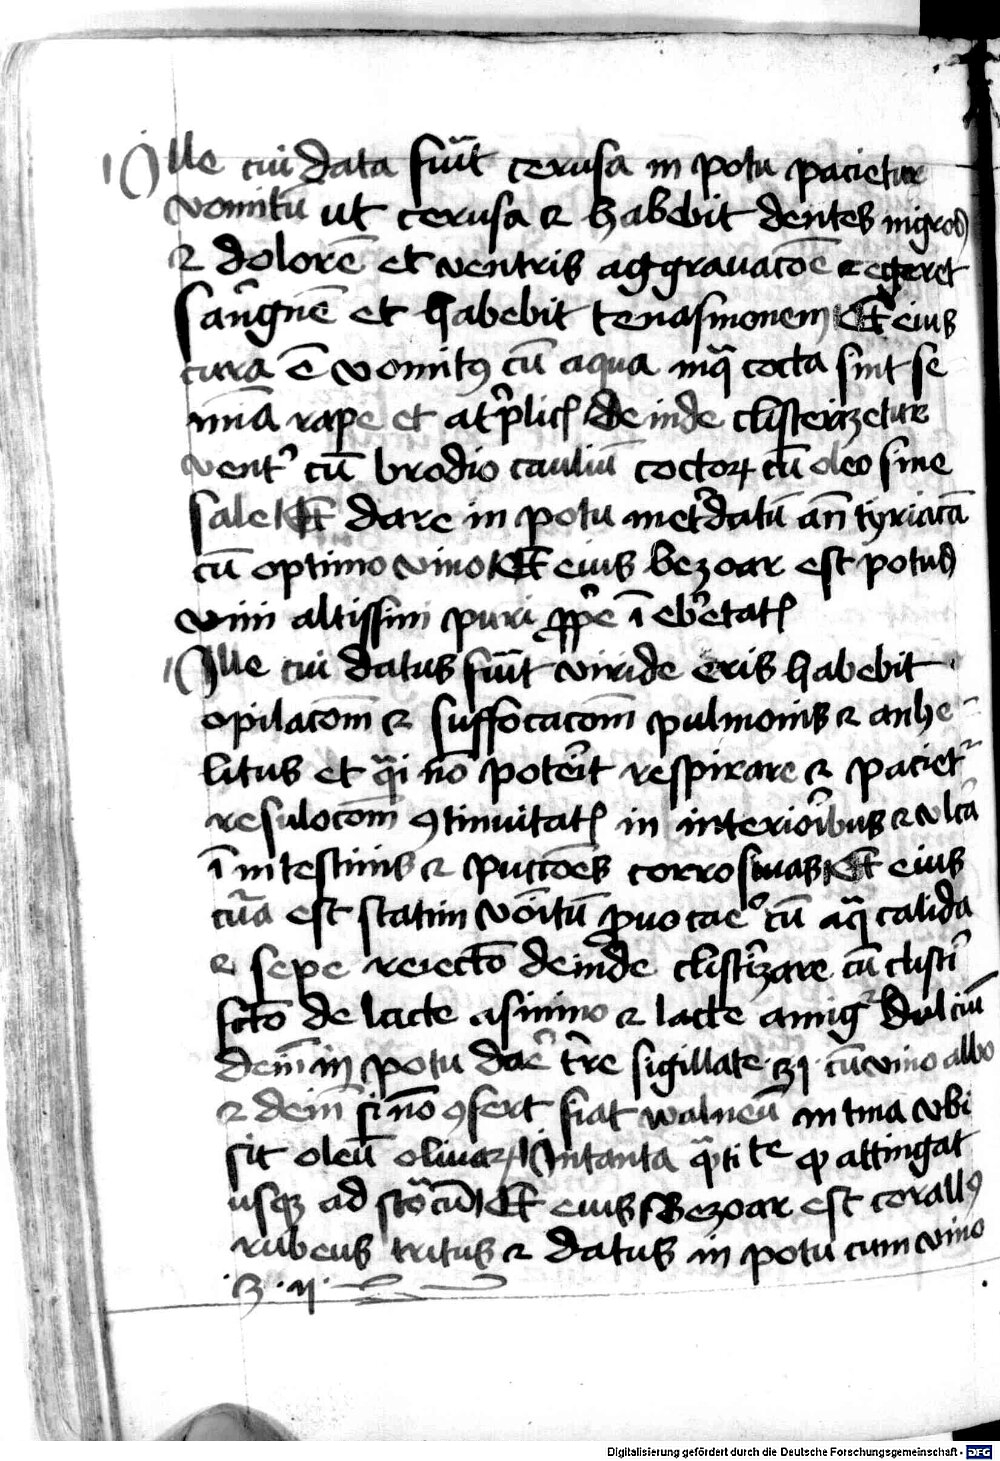 Ille cui data fuıt̄ cerusa in potu pacietur
vomitū ut cerusa et habebit dentes nigros
et dolorē et ventris aggrauacōe et egeret
sangnē et habebit tenasmonem Et eius
cura ē vomitꝰ cū aqua in qͣ cocta sint se
mīa rape et deinde clisterizetur
ventˀ cū brodio cauliū coctoꝝ cū oleo sine
sale Et dare in potu metˀdatū an̄ tyriacā
cū optimo vino Et eius bezoar est potus
vini altissimi puri ī ebˀetatꝭ
Ille cui datus fuıt̄ viride eris habebit
opilacōm et suffocacōm pulmonis et anhe
litus et qͣi nō potˀit respirare et pacietˀ
resulocōm ꝯtinuitatꝭ in interioribus et ulcˀa
ī intestinis et puccōes corrosiuas Et eius
cūa est statim voītū ꝓuocaeˀ cū aqͣ calida
et sepe reiecto deinde clistˀizare cū clistˀi
fcō de lacte asinino et lacte amigˀ dulciū
dein̄ in potu daeˀ tˀre sigillate ʒ i cū vino albo
et dein̄ si nō ꝯfert fiat walneū in tina ubi
sit oleū oliuaꝝ In tanta qͣtitͤ ꝙ attingat
usqꝫ ad stoͣcū Et eius Bezoar est corallꝰ
rubeus tritus et datus in potu cum vino
ʒ ii
Digitalisierung gefördert durch die Deutsche Forschungsgemeinschaft - DFG